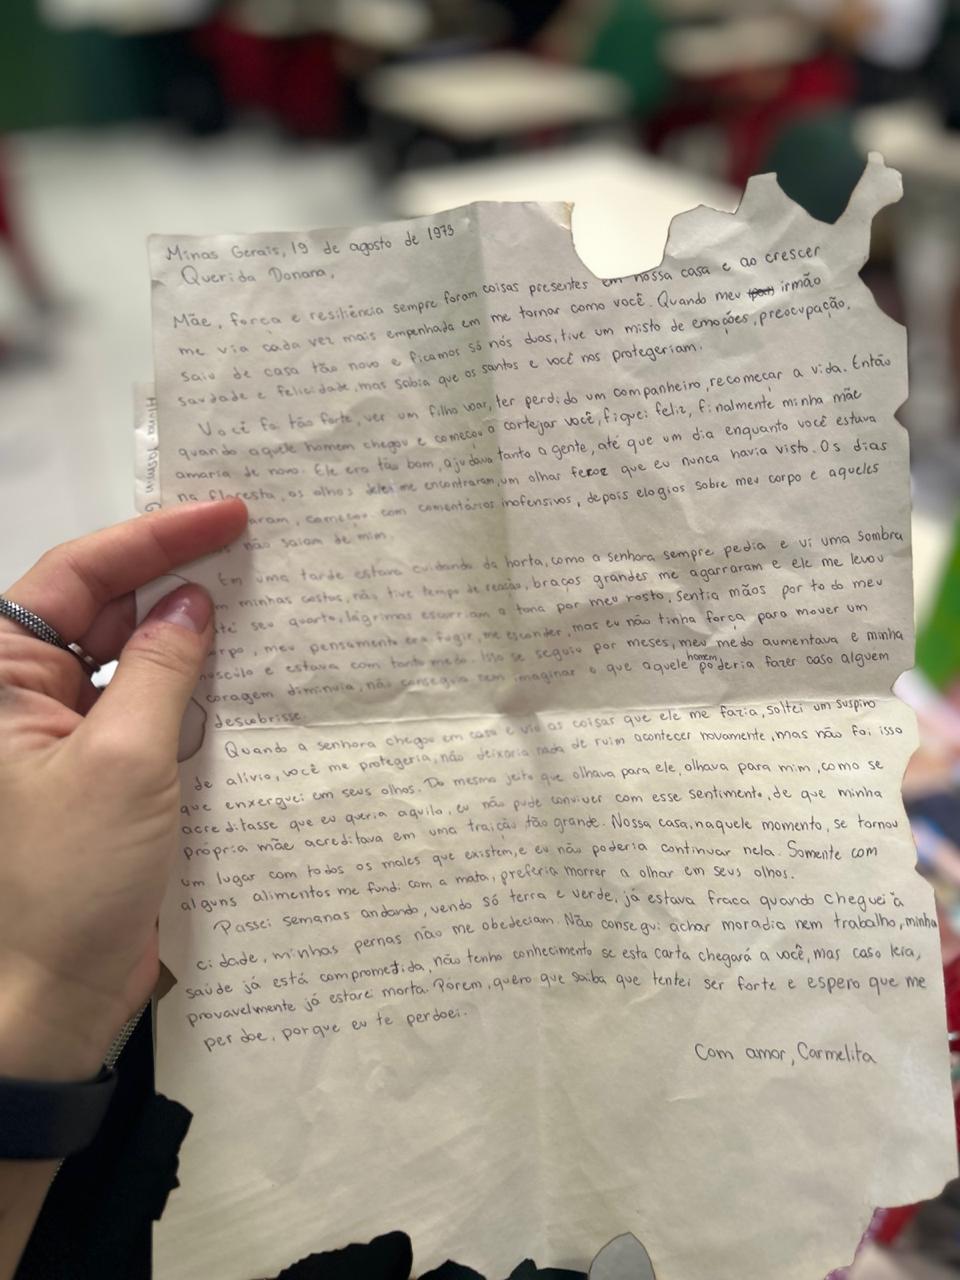 Minas Gerais, 19 de agosto de 1973
Querida Donana,
Mãe, força e resiliência sempre foram coisas presentes em nossa casa e ao crescer
me via cada vez mais empenhada em me tornar como você. Quando meu irmão
saiu de casa tão novo e ficamos só nós duas, tive um misto de emoções, preocupação,
saudade e felicidade, mas sabia que os santos e você nos protegeriam.
Você foi tão forte, ver um filho voar, ter perdido um companheiro, recomeçar a vida. Então
quando aquele homem chegou e começou a cortejar você, fiquei feliz, finalmente minha mãe
amaria de novo. Ele era tão bom, ajudava tanto a gente, até que um dia enquanto você estava
na floresta, os olhos deles me encontraram, um olhar feroz que eu nunca havia visto. Os dias
aram, começou com comentários inofensivos, depois elogios sobre meu corpo e aqueles
não saiam de mim.
Em uma tarde estava cuidando da horta, como a senhora sempre pedia e vi uma sombra
minhas costas, não tive tempo de reação, braços grandes me agarraram e ele me levou
até seu quarto, lágrimas escorriam a tona por meu rosto, sentia mãos por todo meu
orpo, meu pensamento era fugir, me esconder, mas eu não tinha força para mover um
músculo e estava com tanto medo. Isso se seguiu por meses, meu medo aumentava e minha
coragem diminuia, não conseguia nem imaginar o que aquele homem poderia fazer caso alguem
descobrisse.
Quando a senhora chegou em casa e viu as coisas que ele me fazia, soltei um suspiro
de alívio, você me protegeria, não deixaria nada de ruim acontecer novamente, mas não foi isso
que enxerguei em seus olhos. Do mesmo jeito que olhava para ele, olhava para mim, como se
acreditasse que eu queria aquilo, eu não pude conviver com esse sentimento, de que minha
própria mãe acreditava em uma traição tão grande. Nossa casa, naquele momento, se tornou
um lugar com todos os males que existem, e eu não poderia continuar nela. Somente com
alguns alimentos me fundi com a mata, preferia morrer a olhar em seus olhos.
Passei semanas andando, vendo só terra e verde, já estava fraca quando cheguei à
cidade, minhas pernas não me obedeciam. Não consegui achar moradia nem trabalho, minha
saúde já está comprometida, não tenho conhecimento se esta carta chegará a você, mas caso leia,
provavelmente já estarei morta. Porem, quero que saiba que tentei ser forte e espero que me
perdoe, porque eu te perdoei.
Com amor, Carmelita